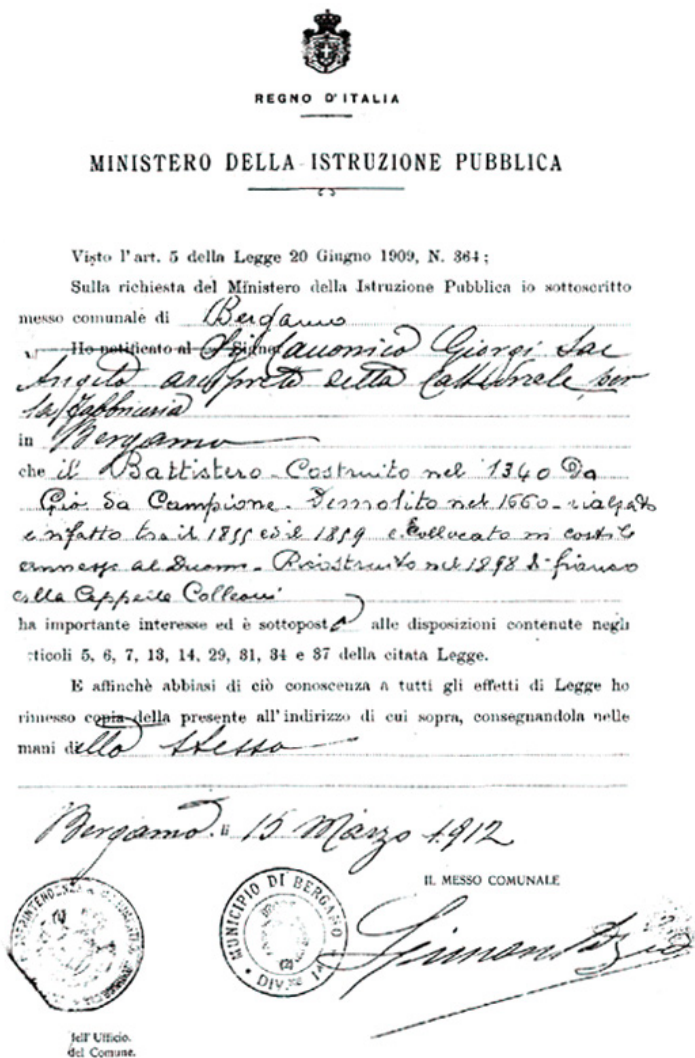 REGNO D'ITALIA
MINISTERO DELLA ISTRUZIONE PUBBLICA
Visto l'art. 5 della Legge 20 Giugno 1909, N. 364;
Sulla richiesta del Ministero della Istruzione Pubblica io sottoscritto
messo comunale di Bergamo
Ho notificato al Signor Canonico Giorgi Sac
Angelo arciprete della Cattedrale per
la fabbriceria
in Bergamo
che il Battistero - Costruito nel 1340 Da
Gio da Campione - Demolito nel 1660 - rialzato
e rifatto tra il 1855 ed il 1859 e Collocato in cortile
annesso al Duomo - Ricostruito nel 1898 di fianco
alla Cappella Colleoni
ha importante interesse ed è sottoposto alle disposizioni contenute negli
rticoli 5, 6, 7, 13, 14, 29, 31, 34 e 37 della citata Legge.
E affinchè abbiasi di ciò conoscenza a tutti gli effetti di Legge ho
rimesso copia della presente all'indirizzo di cui sopra, consegnandola nelle
mani dello stesso
Bergamo. li 15 Marzo 1912
IL MESSO COMUNALE
MUNICIPIO DI BERGAMO
DIV.
dell' Ufficio.
del Comune.